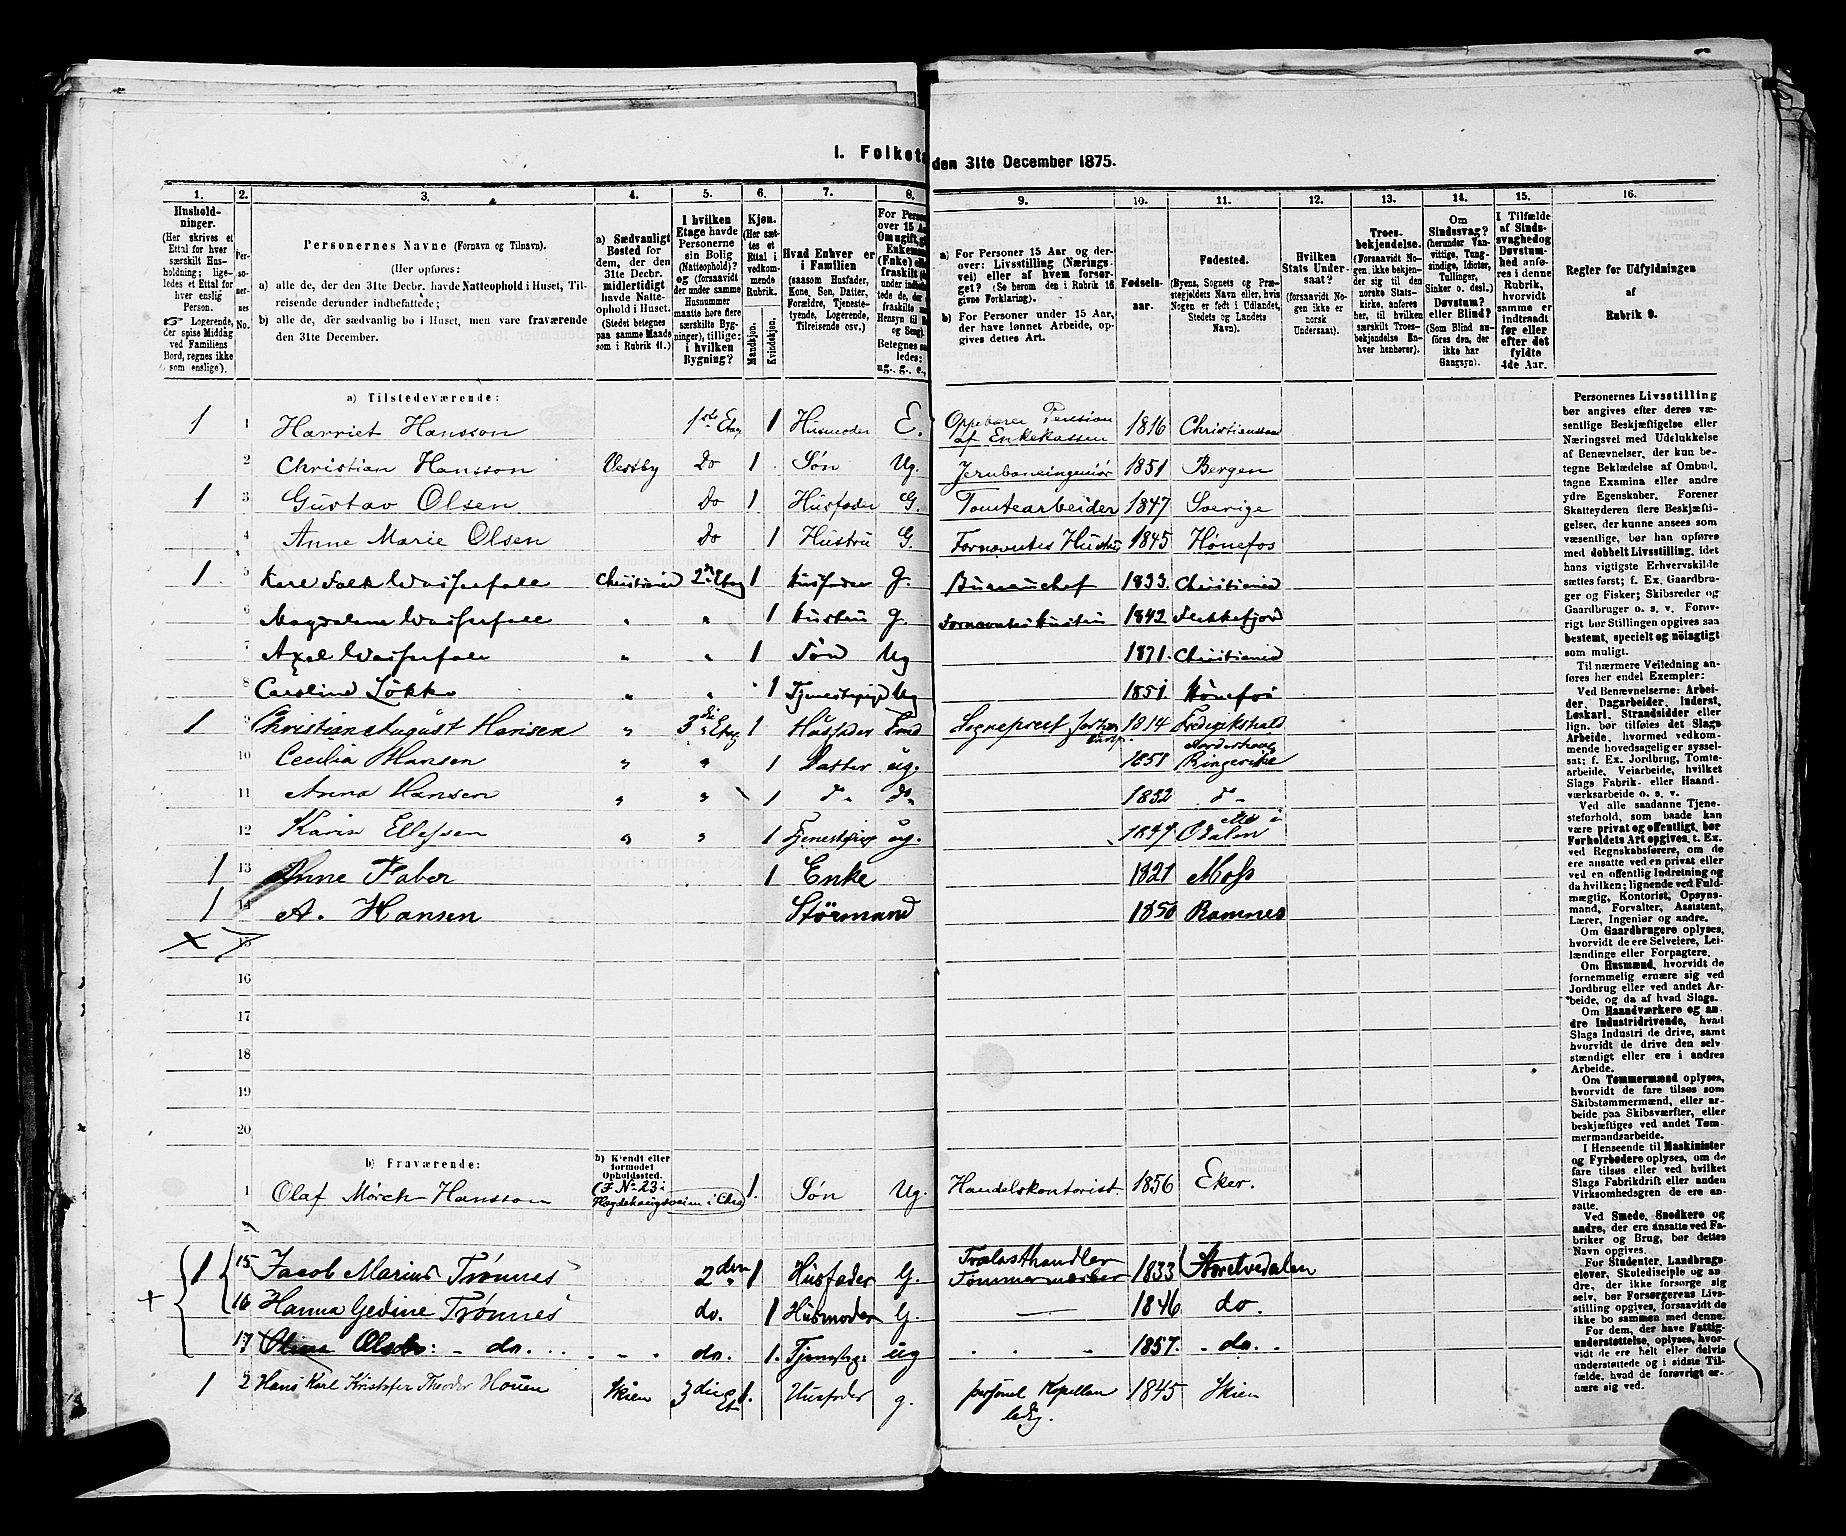 I. Folket
den 31te December 1875.
1. 2. 3. 4. 5. 6. 7. 8. 9. 10. 11. 12. 13. 14. 15. 16.
Hushold-
ninger.
(Her skrives et
Ettal for hver
særskilt Hus-
holdning; lige-
ledes et Ettal
for hver
enslig
Person.
☞ Logerende,
der spise Middag
ved Familiens
Bord, regnes ikke
som enslige).
Per-
so-
ner-
nes
No.
Personernes Navne (Fornavn og Tilnavn).
(Her opføres:
a) alle de, der den 31te Decbr. havde Natteophold i Huset, Til-
reisende derunder indbefattede;
b) alle de, der sædvanlig bo i Huset, men vare fraværende
den 31te December.
a) Sædvanligt
Bosted for
dem, der den
31te Decbr.
midlertidigt
havde Natte-
ophold i Huset.
(Stedet betegnes
paa samme Maade
som i Rubrik 11.)
I hvilken
Etage havde
Personerne
sin Bolig
(Natteophold)?
og (forsaavidt
der under samme
Husnummer
maatte høre flere
særskilte Byg-
ninger), tillige:
i hvilken
Bygning?
Kjøn.
(Her sæt-
tes et
Ettal i
vedkom-
mende
Rubrik.
Mandkjøn.
Kvindekjøn.
Hvad Enhver er
i Familien
(saasom Husfader,
Kone, Søn, Datter,
Forældre, Tjeneste-
tyende, Logerende,
Tilreisende osv.)
For Perso
over 15 A
Om ugift, g
Enkema
(Enke) elle
fraskilt
Betegnes
ledes:
ug., g., e.,
a) For Personer 15 Aar og der-
over: Livsstilling (Nærings-
vei) eller af hvem forsør-
get? (Se herom den i Rubrik 16
givne Forklaring).
b) For Personer under 15 Aar,
der have lønnet Arbeide, op-
gives dettes Art.
Fødsels-
aar.
Fødested.
(Byens, Sognets og Præ-
stegjeldets Navn eller, hvis
Nogen er født i Udlandet,
Stedets og Landets
Navn).
Hvilken
Stats Under-
saat?
(forsaavidt No-
gen ikke er
norsk
Undersaat).
Troes-
bekjendelse.
(Forsaavidt No-
gen ikke bekjen-
der sig til den
norske Stats-
kirke, anføres
her, til hvilken
særskilt Troes-
bekjendelse En-
hver henhører).
Om
Sindssvag?
(herunder Van-
vittige, Tung-
sindige, Idioter,
Tullinger,
Sinker o. desl.)
Døvstum?
eller Blind?
(Som Blind an-
føres den, der
ikke har
Gangsyn).
I Tilfælde
af Sinds-
svaghed og
Døvstum-
hed anfø-
res i denne
Rubrik,
hvorvidt
samme er
indtraadt
før eller
efter det
fyldte
4de Aar.
Regler for Udfyldningen
af
Rubrik 9.
a) Tilstedeværende:
1 1 Harriet Hansson 1ste Etag 1 Husmoder E. Oppebærer Pension af Enkekassen 1816 Christianssand
2 Christian Hansson Vestby Do 1 Søn Ug. Jernbaneingeniør 1851 Bergen
1 3 Gustav Olsen Do 1 Husfader G. Tomtearbeider 1847 Sverige
4 Anne Marie Olsen Do 1 Hustru G. Fornævntes Hustru 1845 Hønefos
1 5 Karl Falk Wasserfall Christiania 2n Etag 1 Husfader g. Bureauchef 1833 Christiania
6 Magdalene Wasserfall " " 1 Hustru g. Fornævntes Hustru 1842 Flekkefjord
7 Axel Wasserfall " " 1 Søn Ug 1871 Christiania
8 Caroline Løkke " " 1 Tjenestepige Ug 1851 Hønefos
1 9 Christian August Hansen " 3die Etag 1 Husfader Sogneprest 1814 Fredrikshald
10 Cecilia Hansen " " 1 Datter ug. 1851 Norderhoug Ringerike
11 Anna Hansen " " 1 do do 1852 do
12 Karin Ellefsen " " 1 Tjenestepige ug. 1847 Odalen
1 13 Anne Faber 1 Enke 1821 Moss
1 14 A. Hansen Størmand 1850 Ramnes
x 7
15
16
17
18
19
20
b) Fraværende:
b) Kjendt eller
formodet
Opholdssted.
1 Olaf Mørch Hansson (F No 23 i Hegdehaugsveien i Chra) 1. Søn Ug. Handelskontorist. 1856 Eker.
2
1 15 Jacob Marius Trønnes 2den 1 Husfader G. Trælasthandler Tømmermærker 1833 Storelvedalen
+ 16 Hanna Gedine Trønnes do. 1 Husmoder G. — 1846 do.
17 Olsen - do. do. 1. Tjenstep: ug 1857. do.
1 2 Hans Karl Kristofer Theodor Houen Skien 3die Et 1. Husfader g. personel Kapellan ledig. 1845 Skien
Personernes Livsstilling
bør angives efter deres væ-
sentlige Beskjæftigelse eller
Næringsvei med Udelukkelse
af Benævnelser, der kun be-
tegne Beklædelse af Ombud,
tagne Examina eller andre
ydre Egenskaber. Forener
Skatteyderen flere Beskjæfti-
gelser, der kunne ansees som
væsentlige, bør han opføres
med dobbelt Livsstilling, idet
hans vigtigste Erhvervskilde
sættes først; f. Ex. Gaardbru-
ger og Fisker; Skibsreder og
Gaardbruger o. s. v. Forøv-
rigt bør Stillingen opgives saa
bestemt, specielt og nöiagtigt
som muligt.
Til nærmere Veiledning an-
føres her endel Exempler:
Ved Benævnelserne: Arbei-
der, Dagarbeider, Inderst,
Løskarl, Strandsidder eller
lign. bør tilføies det Slags
Arbeide, hvormed vedkom-
mende hovedsagelig er syssel-
sat; f. Ex. Jordbrug, Tomte-
arbeide, Veiarbeide, hvilket
Slags Fabrik- eller Haand-
værksarbeide o. s. v.
Ved alle saadanne Tjene-
steforhold, som baade kan
være privat og offentligt, bør
Forholdets Art opgives, t. Ex.
ved Regnskabsførere, om de
ere ansatte ved en privat eller
ved en offentlig Indretning og
da hvilken; lignende ved Fuld-
mægtig, Kontorist, Opsyns-
mand, Forvalter, Assistent,
Lærer, Ingeniør og andre.
Om Gaardbrugere oplyses,
hvorvidt de ere Selveiere, Lei-
lændinge eller Forpagtere.
Om Husmænd, hvorvidt de
fornemmelig ernære sig ved
Jordbrug eller ved andet Ar-
beide, og da af hvad Slags.
Om Haandværkere og an-
dre Industridrivende, hvad
Slags Industri de drive, samt
hvorvidt de drive den selv-
stændigt eller ere i andres
Arbeide.
Om Tømmermænd oplyses,
hvorvidt de fare tilsøs som
Skibstømmermænd, eller ar-
beide paa Skibsværfter, eller
beskjæftiges ved andet Tøm-
mermandsarbeide.
I Henseende til Maskinister
og Fyrbødere oplyses, om de
fare tilsøs eller ved hvilket
Slags Fabrikdrift eller anden
Virksomhedsgren de ere an-
satte.
Ved Smede, Snedkere og
andre, der ere ansatte ved Fa-
briker og Brug, bør dettes
Navn opgives.
For Studenter, Landbrugs-
elever, Skoledisciple og an-
dre, der ikke forsørge sig
selv, bør Forsørgerens Livs-
stilling opgives, forsaavidt de
ikke bo sammen med denne.
For dem, der have Fattig-
understøttelse, oplyses, hvor-
vidt de ere helt eller delvis
understøttede og i sidste Til-
fælde, hvad de forøvrigt er-
nære sig ved.